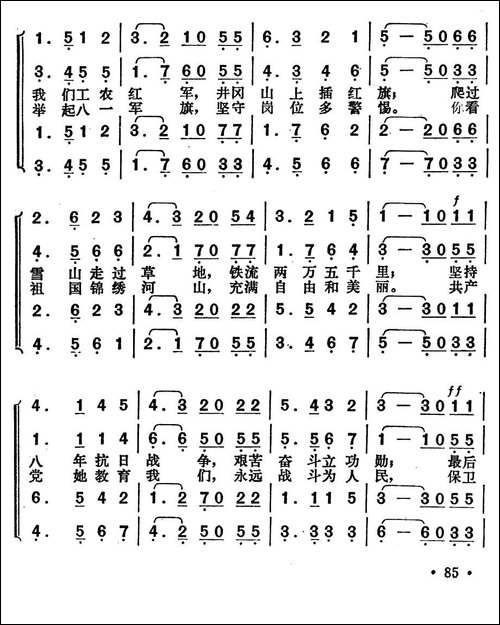 1. 5 1 2 | 3. 2 10 55 | 6. 3 2 2 | 5 — 5066 |
3. 45 5 | 1. 7 60 55 | 4. 3 4 6 | 5 — 5033 |
我 们工 农 红 军，井冈 山 上 插 红 旗； 爬过
举 起八 一 军 旗，坚守 岗 位 多 警 惕。 你看
1. 51 2 | 3. 2 10 77 | 1. 7 6 2 | 2 — 2066 |
3. 45 5 | 1. 7 60 33 | 4. 5 6 2 | 7 — 7033 |
f
2. 6 2 3 | 4. 3 20 54 | 3. 2 1 5 | 1 — 1011 |
4. 5 6 6 | 2. 1 70 77 | 1. 7 6 4 | 3 — 3055 |
雪 山 走 过 草 地，铁流 两 万 五 千 里； 坚持
祖 国 锦 绣 河 山，充满 自 由 和 美 丽。 共产
2. 6 2 3 | 4. 3 20 22 | 5. 5 3 2 | 3 — 3011 |
4. 5 6 1 | 2. 1 70 55 | 3. 4 6 7 | 5 — 5055 |
ff
4. 1 4 5 | 4. 3 20 22 | 5. 43 2 | 3 — 3011 |
1. 1 1 4 | 6. 6 50 55 | 5. 56 7 | 1 — 1055 |
八 年 抗 日 战 争，艰苦 奋 斗立 功 勋； 最后
党 她 教 育 我 们，永远 战 斗为 人 民， 保卫
6. 5 4 2 | 1. 2 70 22 | 1. 11 5 | 3 — 3011 |
4. 5 6 7 | 4. 2 50 55 | 3. 33 3 | 6 — 6033 |
· 85 ·